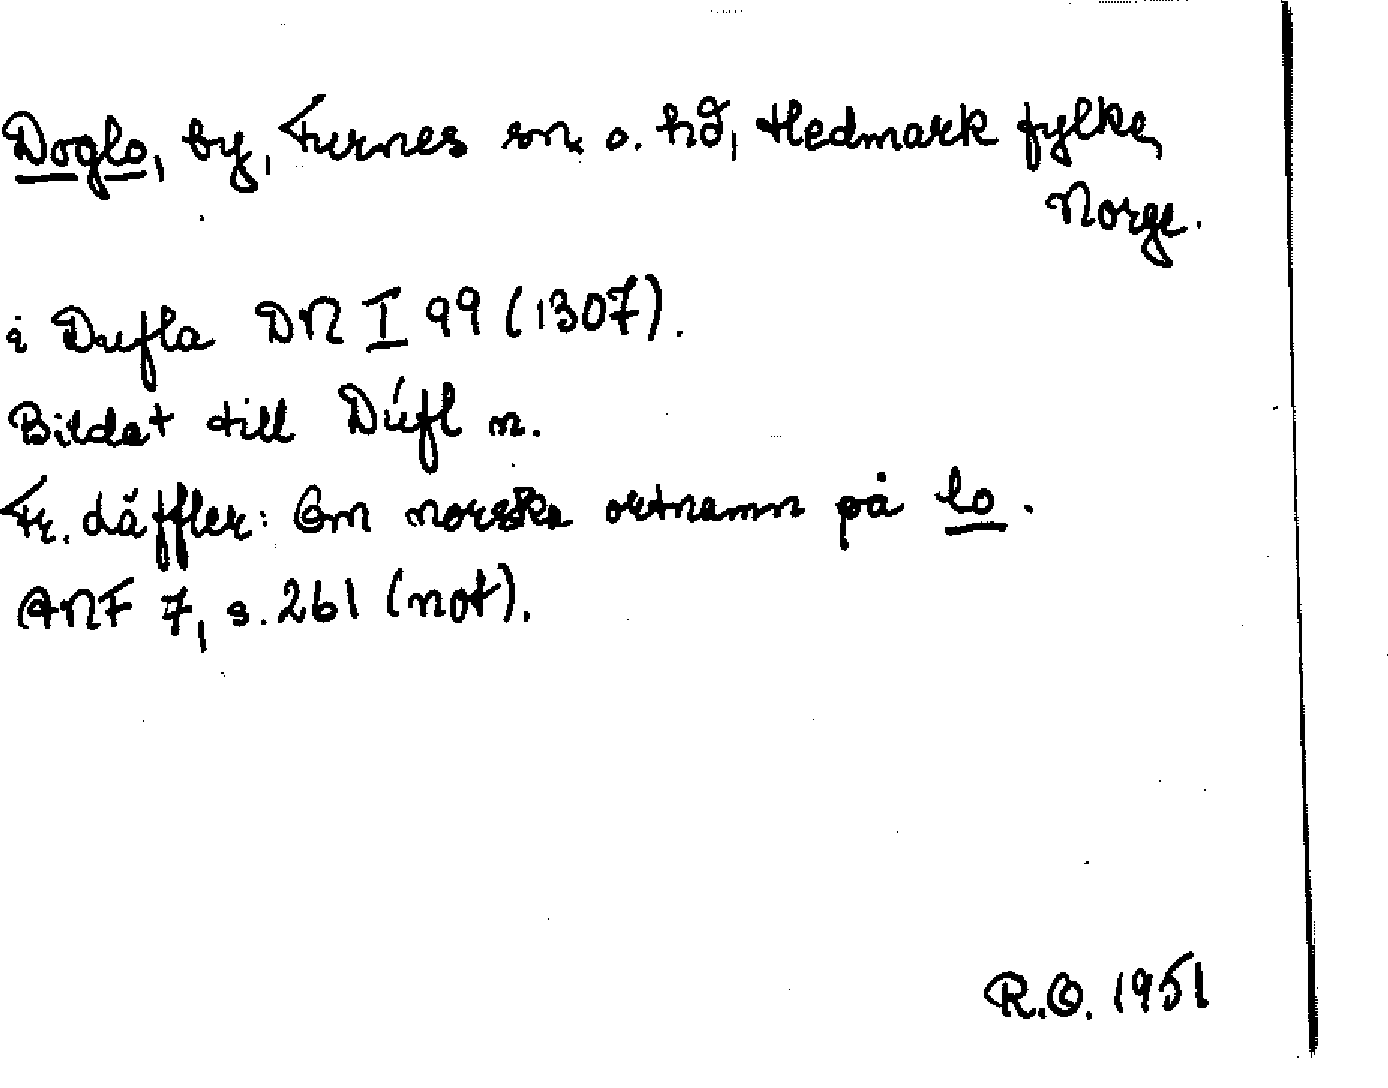 Doglo, by, Furnes sn. o. hd, Hedmark fylke,
Norge.
i Dufla DN I 99 (1307).
Bildat till Dúfl n.
Fr. Läffler: Om norska ortnamn på lo.
ANF 7, s. 261 (not).
R.O. 1951